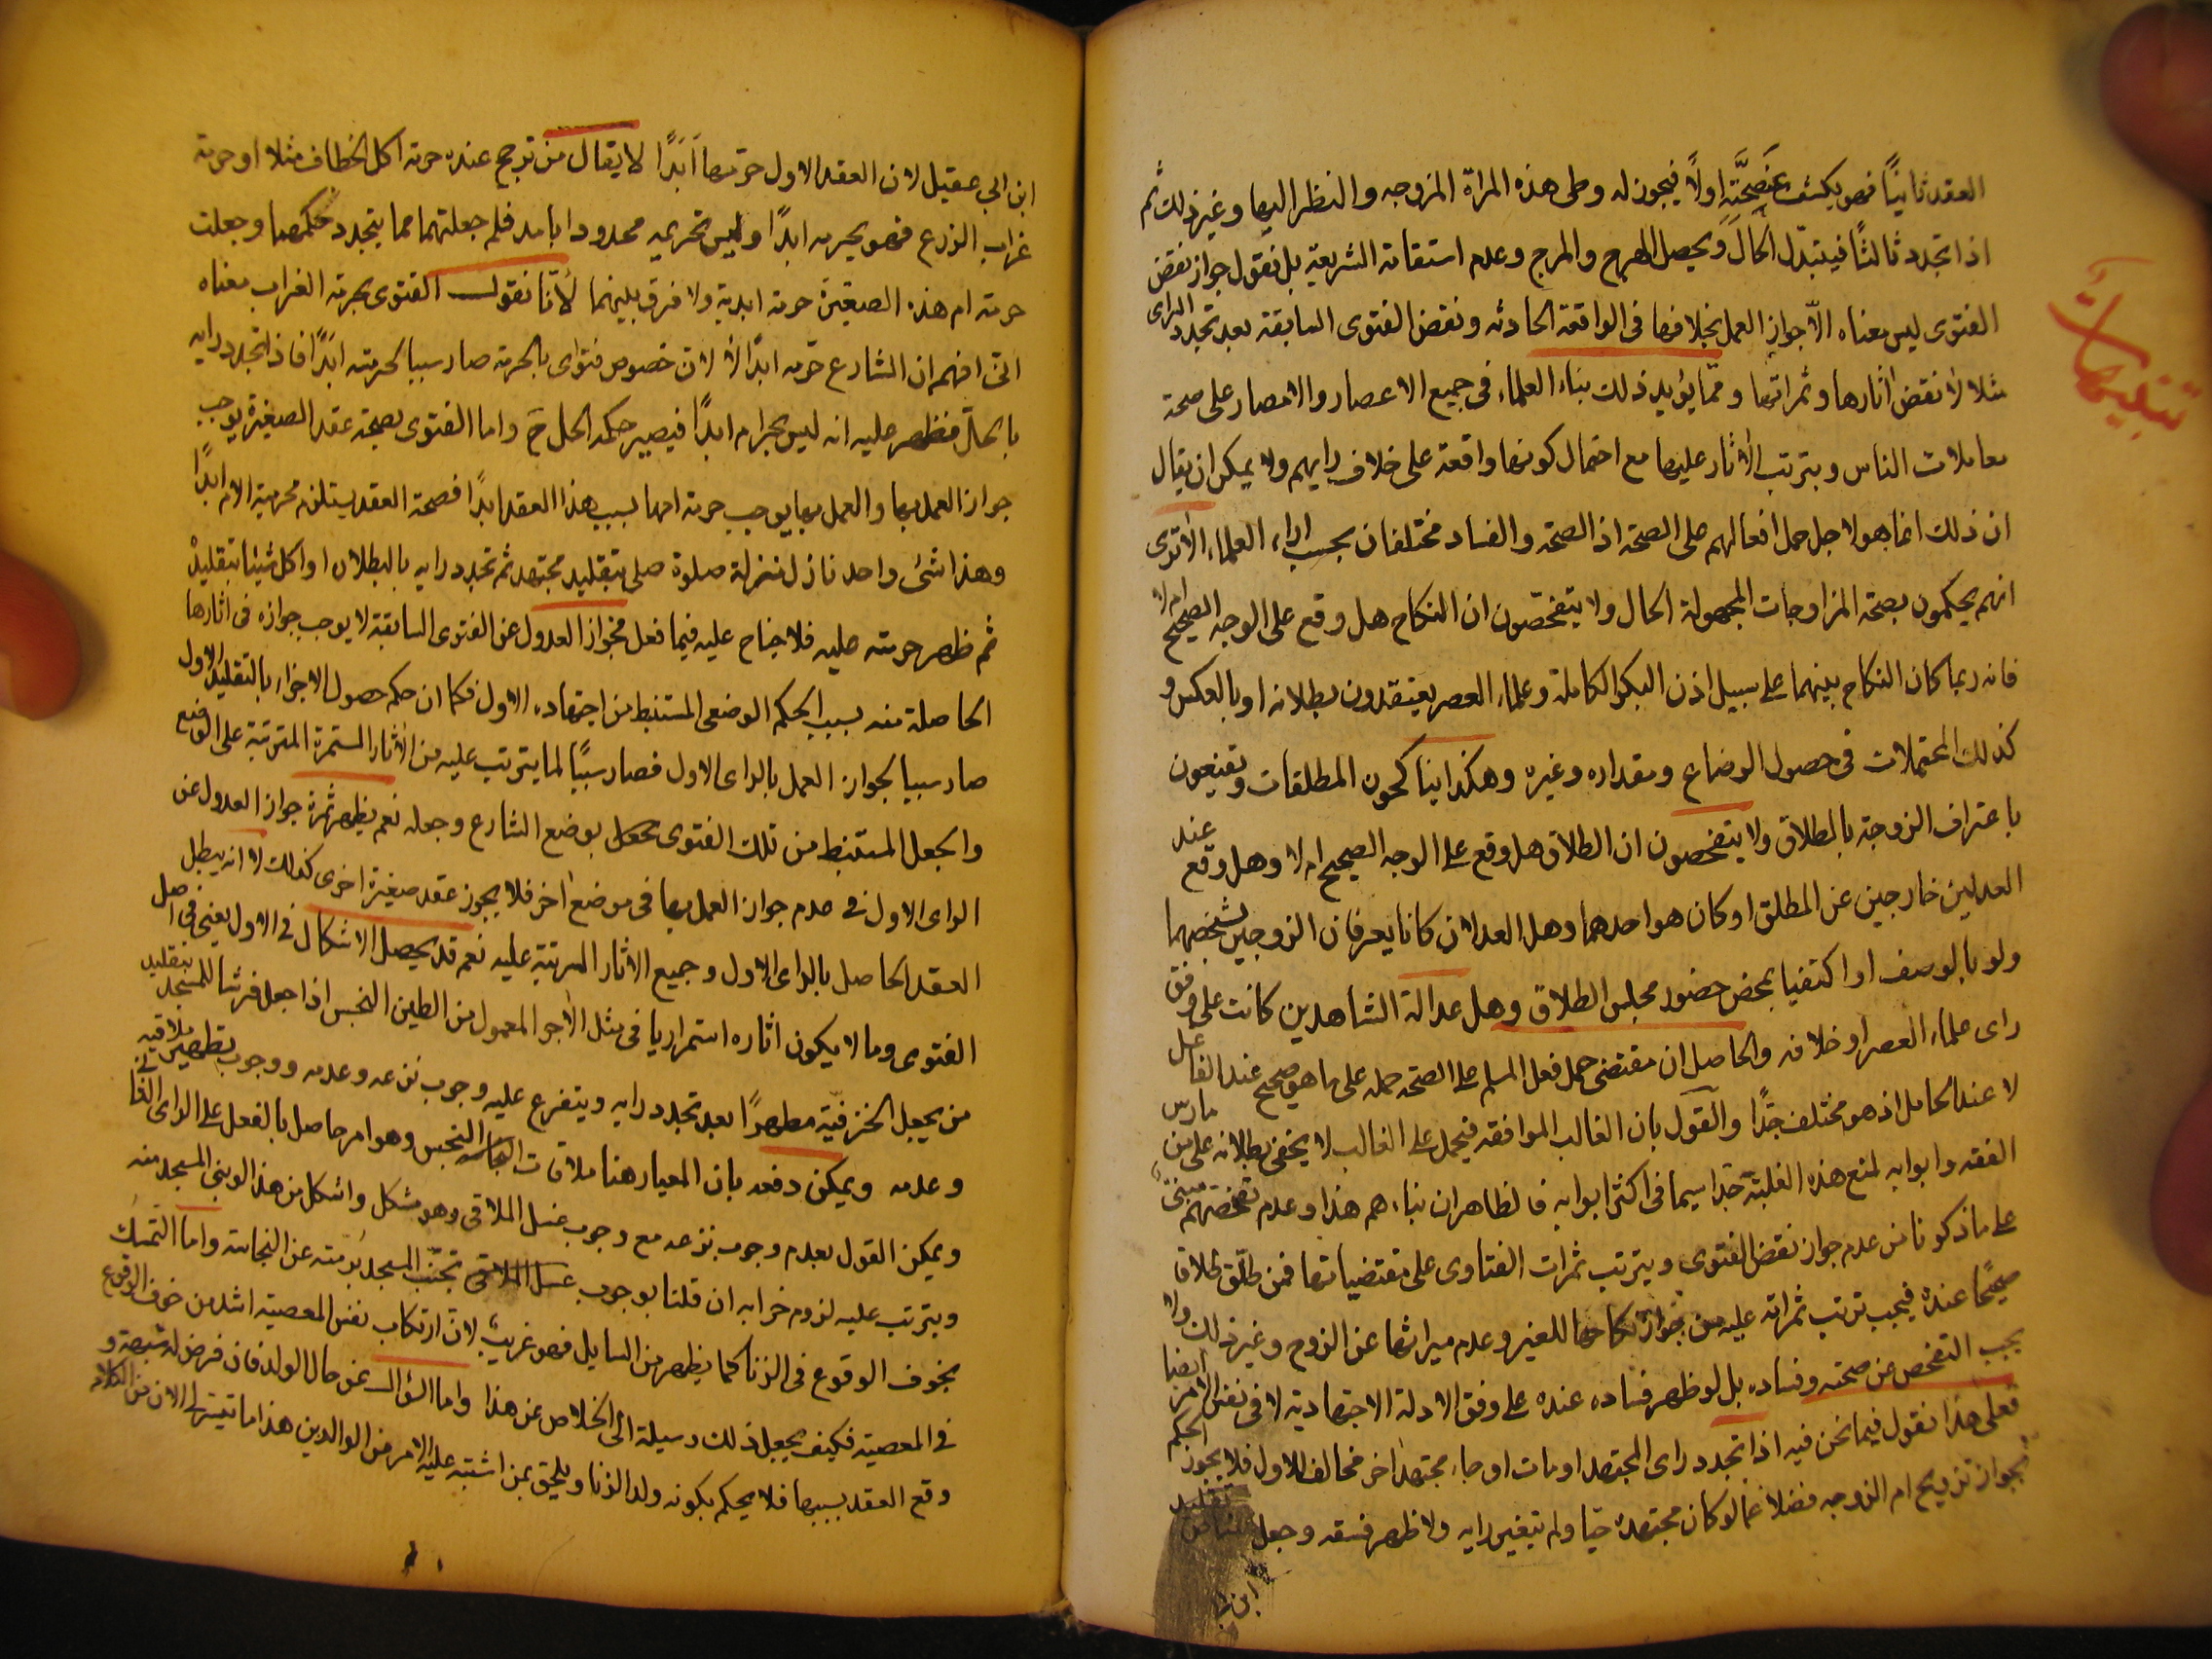 العقد ثانيًا فهو يكشف عن صحّته اولًا فيجوز له وطى هذه المراة المزوجه والنظر اليها وغير ذلك ثم
اذا تجدد ثالثًا فيتبدّل الحال ويحصل الهرج والمرج وعدم استقامة الشريعة بل نقول جواز نقض
الفتوى ليس معناه الّا جواز العمل بخلافها فى الواقعة الحادثه ونقض الفتوى السابقة بعد تجدد الراى
تنبيهات
مثلا لا نقض اثارها وثمراتها وممّا يؤيد ذلك بناء العلماء فى جميع الاعصار والامصار على صحة
معاملات الناس وبترتب الآثار عليها مع احتمال كونها واقعة على خلاف رايهم ولا يمكن ان يقال
ان ذلك انما هو لاجل حمل افعالهم على الصحة اذ الصحة والفساد مختلفان بحسب اراء العلماء الا ترى
انهم يحكمون بصحة المزاوجات المجهولة الحال ولا يتفحّصون ان النكاح هل وقع على الوجه الصحيح ام لا
فانه ربما كان النكاح بينهما على سبيل اذن البكر الكاملة وعلماء العصر يعتقدون بطلانه او بالعكس و
كذلك المحتملات فى حصول الرضاع ومقداره وغيره وهكذا يناكحون المطلقات ويقنعون
باعتراف الزوجة بالطلاق ولا يتفحصون ان الطلاق هل وقع على الوجه الصحيح ام لا وهل وقع عند
العدلين خارجين عن المطلق او كان هو احدهما وهل العدلان كانا يعرفان الزوجين بشخصهما
ولو بالوصف او اكتفيا بمحض حضور مجلس الطلاق وهل عدالة الشاهدين كانت على وفق
راى علماء العصر او خلافه والحاصل ان مقتضى حمل فعل المسلم على الصحة حمله على ما هو صحيح عند الفاعل
لا عند الحامل اذ هو مختلف جدًّا والقول بان الغالب الموافقه فيحمل على الغالب لا يخفى بطلانه على من مارس
الفقه وابوابه لمنع هذه الغلبة جدا سيما فى اكثر ابوابه فالظاهر ان بناءهم هذا وعدم تفحّصهم مبنىّ
على ما ذكرنا من عدم جواز نقض الفتوى ويترتب ثمرات الفتاوى على مقتضياتها فمن طلّق طلاقا
صحيحًا عنده فيجب ترتب ثمراته عليه من جواز نكاحها للغير وعدم ميراثها عن الزوج وغير ذلك ولا
يجب التفحص عن صحته وفساده بل لو ظهر فساده عنده على وفق الادلة الاجتهادية لا فى نفس الامر ايضا
فعلى هذا نقول فيما نحن فيه اذا تجدد راى المجتهد او مات او جاء مجتهد اخر مخالف للاول فلا يجوز الحكم
بجواز تزويج ام الزوجه فضلا عما لو كان مجتهده حيّا ولم يتغير رايه ولا ظهر فسقه وجعل تقليد
ابن
ابن ابي عقيل لان العقد الاول حرّمها ابدًا لا يقال من ترجح عنده حرمة اكل الخطاف مثلا او حرمة
غراب الزرع فهو يحرمه ابدًا وليس تحريمه محدودا بامد فلم جعلتهما مما يتجدد حكمهما وجعلت
حرمة ام هذه الصغيرة حرمة ابدية ولا فرق بينهما لانّا نقول الفتوى بحرمة الغراب معناه
انى افهم ان الشارع حرّمه ابدًا لا لان خصوص فتواى بالحرمة صار سببا لحرمته ابدًا فاذا تجدد رايه
بالحلّ فظهر عليه انه ليس بحرام ابدًا فيصير حكمه الحل ح واما الفتوى بصحة عقد الصغيرة يوجب
جواز العمل بها والعمل بها يوجب حرمة امها بسبب هذا العقد ابدًا فصحة العقد يستلزم محرمية الام ابدًا
وهذا شئ واحد نازل منزلة صلوة صلى بتقليد مجتهد ثم تجدد رايه بالبطلان او اكل شيئا بتقليدٍ
ثم ظهر حرمته عليه فلا جناح عليه فيما فعل فجواز العدول عن الفتوى السابقة لا يوجب جوازه فى اثارها
الحاصلة منه بسبب الحكم الوضعى المستنبط من اجتهاده الاول فكما ان حكم حصول الاجزاء بالتقليد الاول
صار سببا لجواز العمل بالراى الاول فصار سببًا لما يترتب عليه من الآثار المستمرة المترتبة على الوضع
والجعل المستنبط من تلك الفتوى بجعل بوضع الشارع وجعله نعم يظهر ثمرة جواز العدول عن
الراى الاول فى عدم جواز العمل بها فى موضع اخر فلا يجوز عقد صغيرة اخرى كذلك لا انه يبطل
العقد الحاصل بالراى الاول وجميع الآثار المرتبة عليه نعم قد يحصل الاشكال فى الاول يعنى فى اصل
الفتوى وما لا يكون اثاره استمراريا فى مثل الآجر المعمول من الطين النجس اذا جعل فرشا للمسجد بتقليد
من يجعل الخزفيّة مطهرًا بعد تجدد رايه ويتفرع عليه وجوب نزعه وعدمه ووجوب تطهير ملاقيه
وعدمه ويمكن دفعه بان المعيار هنا ملاقات النجس وهو امر حاصل بالفعل على الراى الثانى
ويمكن القول بعدم وجوب نزعه مع وجوب غسل الملاقى وهو مشكل واشكل من هذا لو بنى المسجد منه
ويترتب عليه لزوم خرابه ان قلنا بوجوب تجنّب المسجد برمّته عن النجاسة واما التمسّك
بخوف الوقوع فى الزنا كما يظهر من السايل فهو غريب لان ارتكاب نفس المعصية اشد من خوف الوقوع
فى المعصية فكيف يجعل ذلك وسيلة الى الخلاص عن هذا واما السؤال عن حال الولد فان فرض له شبهة و
وقع العقد بسببها فلا يحكم بكونه ولد الزنا ويلحق بمن اشتبه عليه الامر من الوالدين هذا ما تيسّر لى الان من الكلام